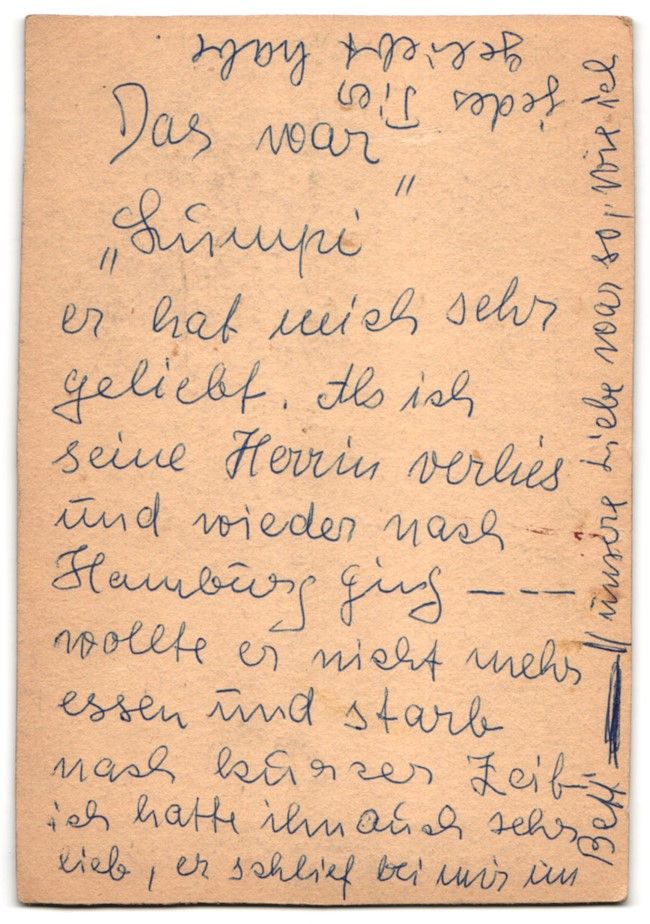 Das war
„Lumpi"
er hat mich sehr
geliebt. Als ich
seine Herrin verlies
und wieder nach
Hamburg ging – – –
wollte er nicht mehr
essen und starb
nach kurzer Zeit
ich hatte ihn auch sehr
lieb, er schlief bei mir im
Bett — unsere Liebe war so, wie ich
jedes Tier
geliebt habe